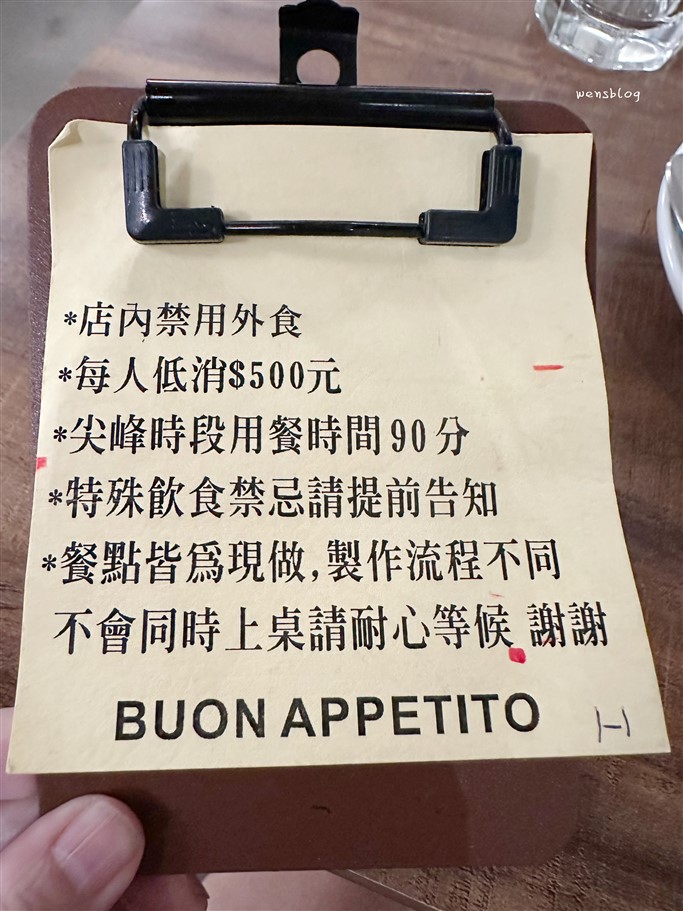 wensblog
*店內禁用外食
*每人低消$500元
*尖峰時段用餐時間90分
*特殊飲食禁忌請提前告知
*餐點皆為現做,製作流程不同
不會同時上桌請耐心等候 謝謝
BUON APPETITO
1-1